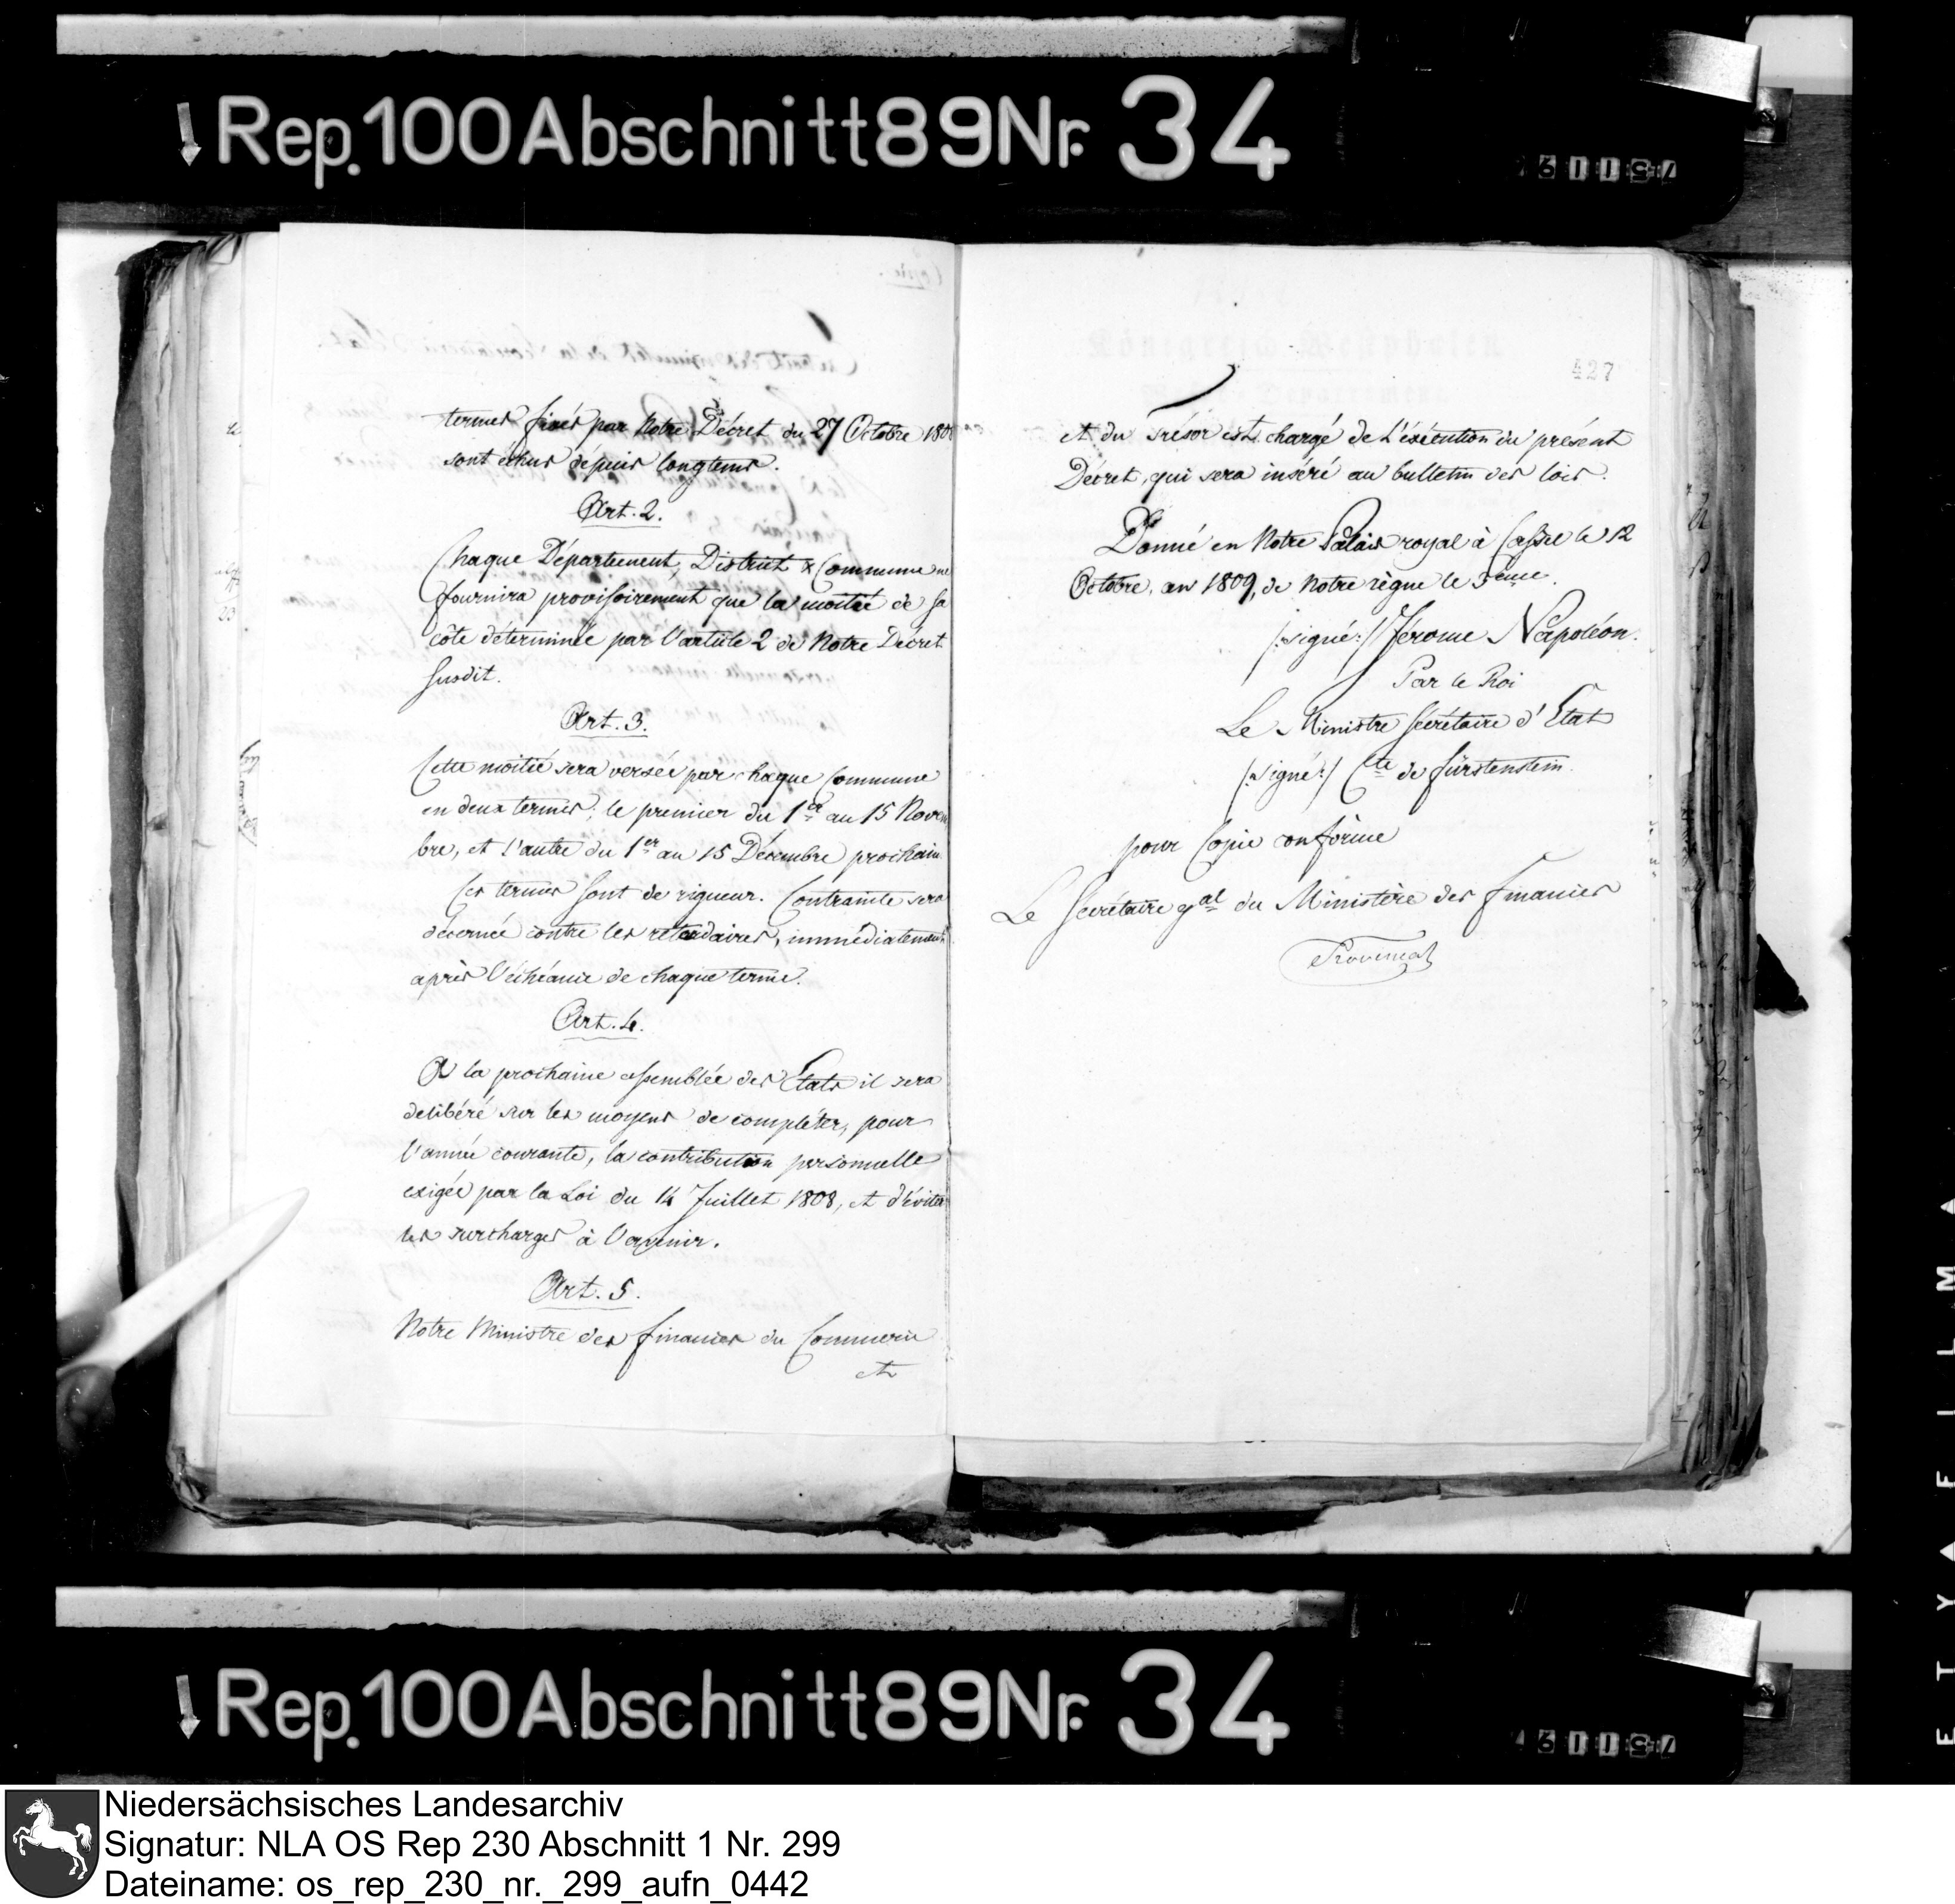 Rep. 100 Abschnitt 89 Nr. 34
termes fixés par Notre Décret du 27 Octobre 1808
sont échus dépuis longtems.
Art. 2.
Chaque Département, District & Commune ne
fournira provisoirement que la moitié de sa
côte déterminée par l'article 2 de Notre Décret
susdit.
Art. 3.
Cette moitié sera versée par chaque Commune
en deux termes; le premier du 1er au 15 Novem
bre, et l'autre du 1er au 15 Décembre prochain.
Ces termes sont de rigueur. Contrainte sera
décernée contre les retardaires, immédiatement
après l'échéance de chaque terme.
Art. 4.
A la prochaine assemblée des Etats il sera
delibéré sur les moyens de compléter, pour
l'année courante, la contribution personnelle
exigée par la Loi du 14 Juillet 1808, et d'éviter
les surcharges à l'avenir.
Art. 5.
Notre Ministre des finances du Commerce
et
427
et du Trésor est chargé de l'éxécution du présent
Décret, qui sera inséré au bulletin des lois.
Donné en Notre Palais royal à Cassel le 12
Octobre, an 1809, de Notre règne le 3ème.
/:signé:/ Jérome Napoléon.
Par le Roi
Le Ministre Secrétaire d'Etat
/:signé:/ Cte de fürstenstein.
pour Copie conforme
Le Secrétaire gal du Ministère des finances
Provençal
Rep. 100 Abschnitt 89 Nr. 34
ETYAFILMA
Niedersächsisches Landesarchiv
Signatur: NLA OS Rep 230 Abschnitt 1 Nr. 299
Dateiname: os_rep_230_nr._299_aufn_0442